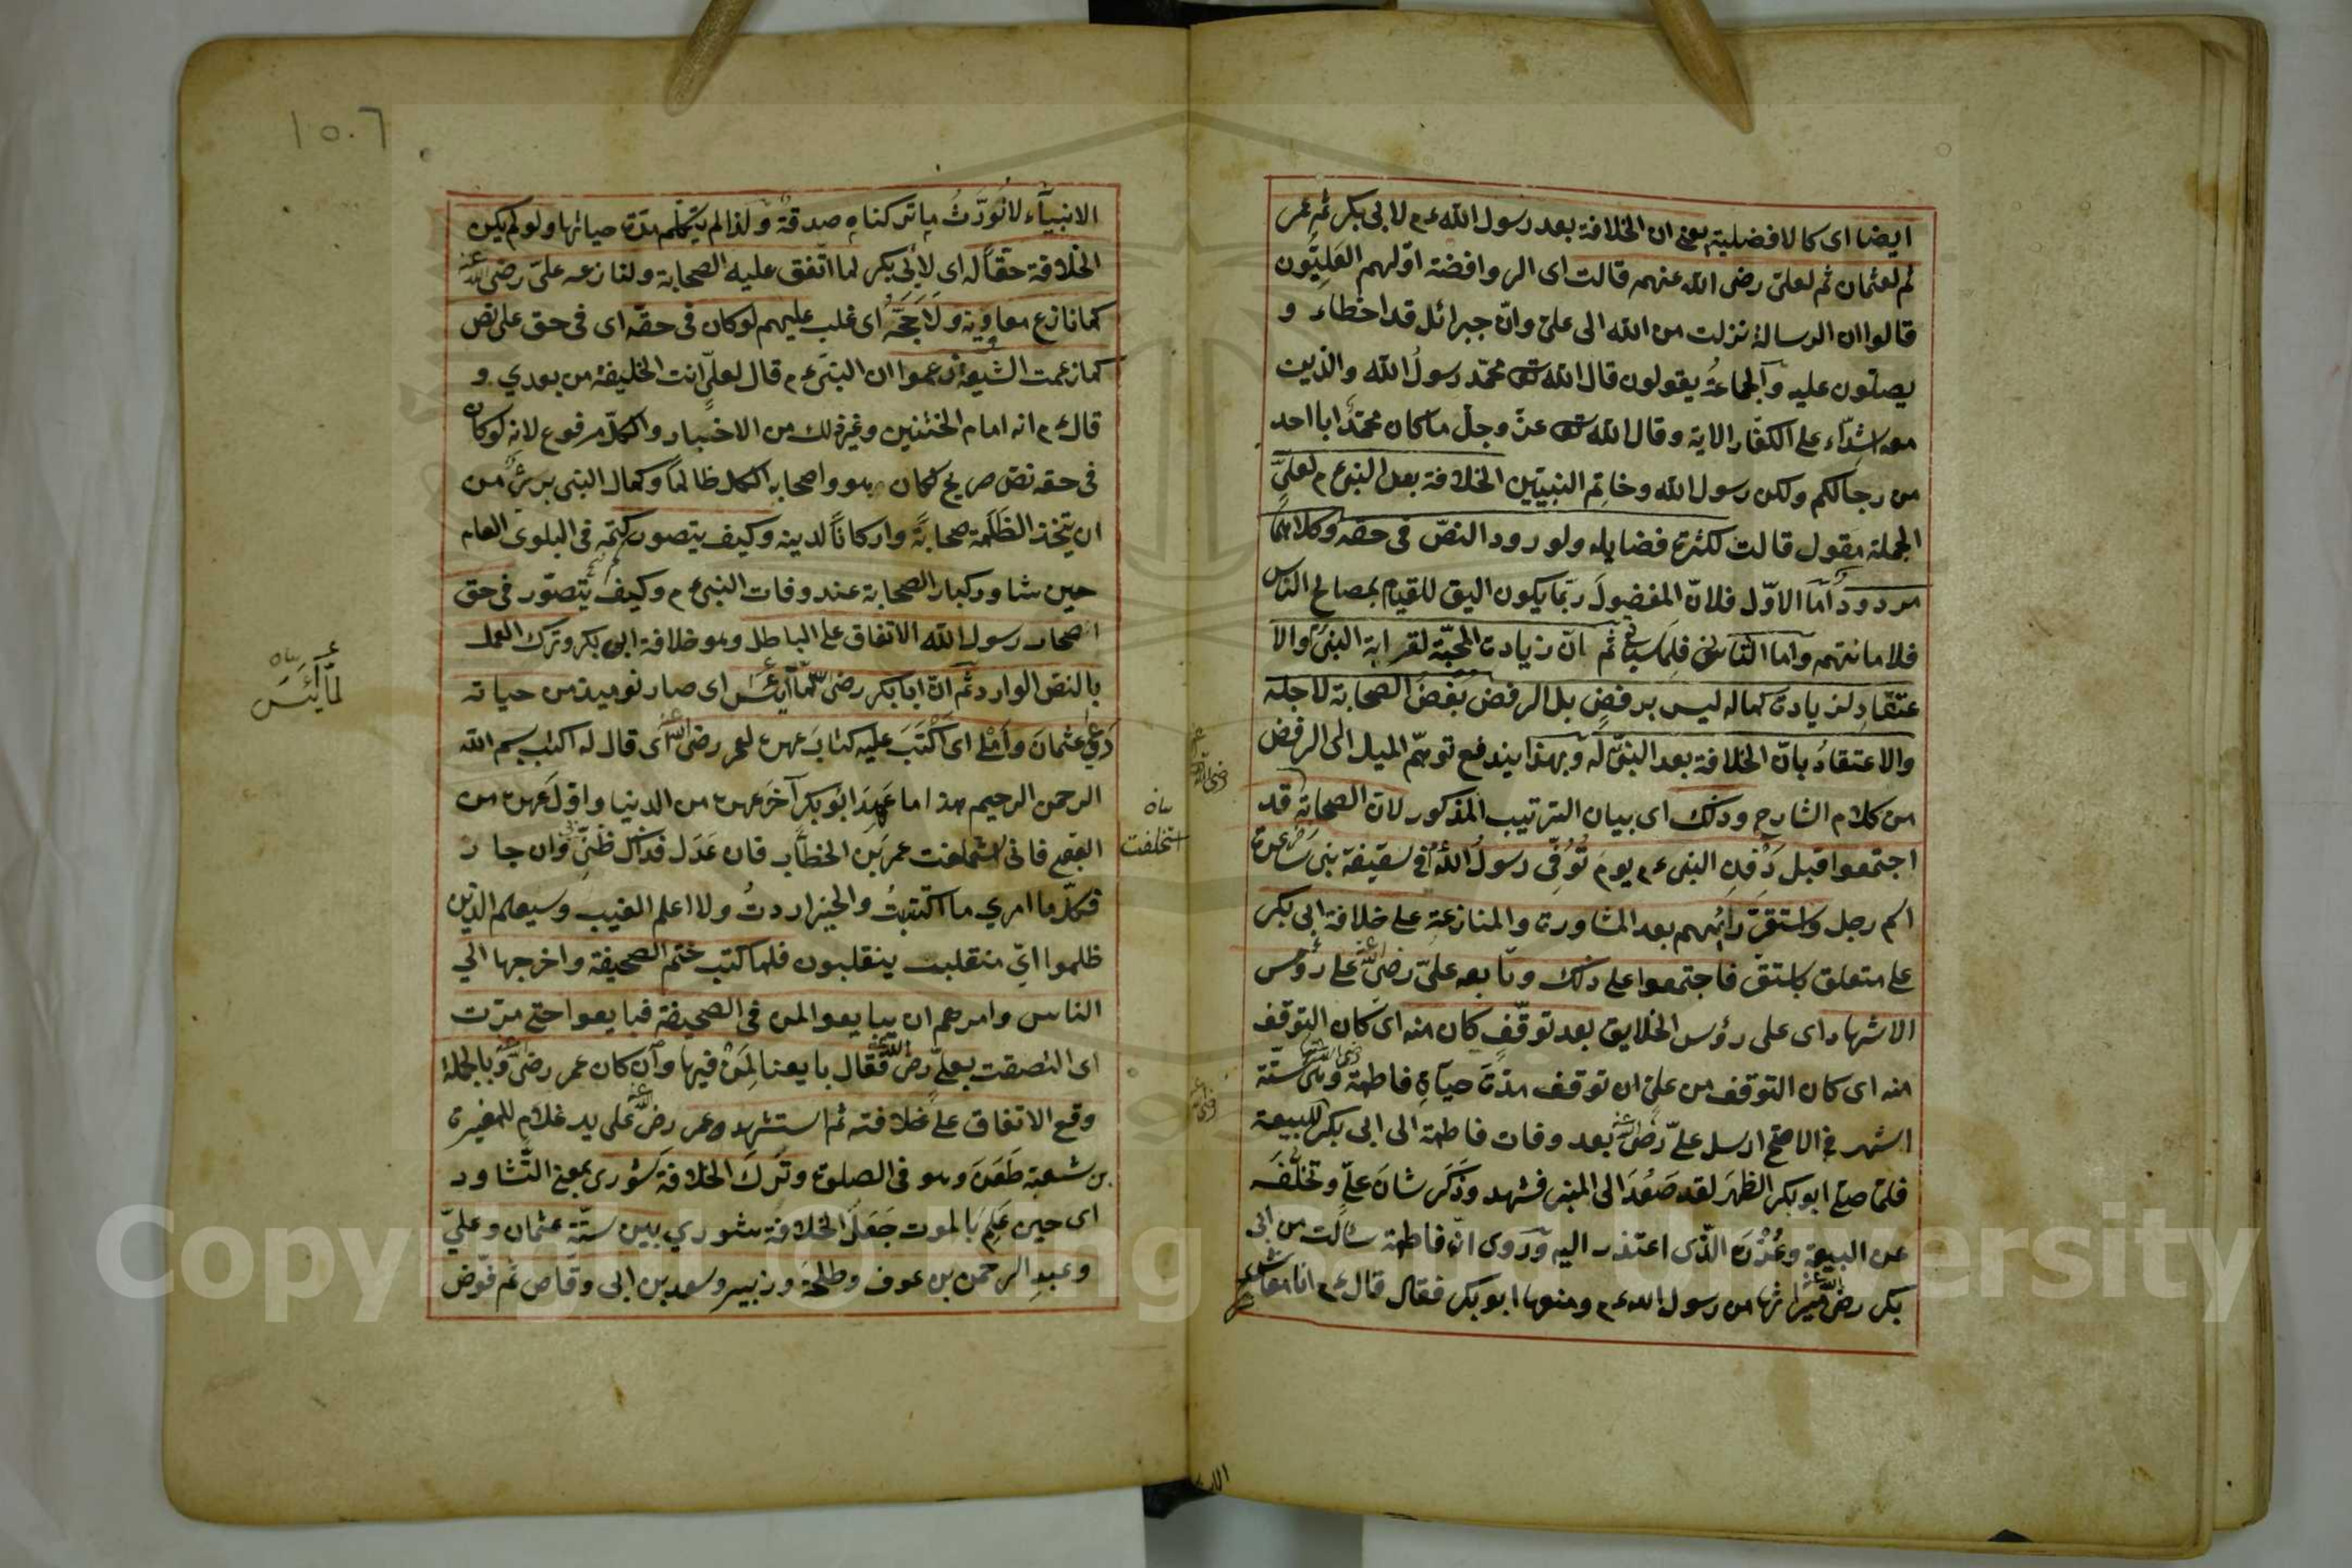 ايضا اى كالافضلية يعنى ان الخلافة بعد رسول الله ءم لابى بكر ثم عمر
ثم لعثمان ثم لعلى رضى الله عنهم قالت اى الروافضة اولهم العليّون
قالوا ان الرسالة نزلت من الله الى على وانّ جبرائل قد اخطاء و
يصلون عليه والجماعةُ يقولون قال الله تعالى محمّد رسولُ الله والذين
معه اشدّاء على الكفّار الاية وقال الله تعالى عزّ وجلّ ما كان محمّدٌ ابا احد
من رجالكم ولكن رسول الله وخاتم النبيّين الخلافة بعد النبى ءم لعلىّ
الجملة مقول قالت لكثرة فضايله ولورود النصّ فى حقه وكلاهما
مردودٌ امّا الاوّل فلانّ المفضولَ ربّما يكون اليق للقيام بمصالح الناس
فلامانتهم وامّا الثانى فلما سياتى ثم انّ زيادة المحبّة لقرابة النبى والا
عتقادِ لزيادة كماله ليس برفضٍ بل الرفض بغضُ الصحابة لاجله
والاعتقادُ بانّ الخلافة بعد النبىّ له وبهذا يندفع توهّم الميل الى الرفض
من كلام الشارح وذلك اى بيان الترتيب المذكور لانّ الصحابة قد
اجتمعوا قبل دَفْنِ النبى ءم يوم تُوُفّى رسولُ الله فى سقيفة بنى ساعدة
اسم رجل واستقرّ رايُهم بعد المشاورة والمنازعةِ على خلافة ابى بكر
على متعلق باستقرّ فاجتمعوا على ذلك وبايعه علىّ رضى الله عنه على رؤس
الاشهاد اى على رؤس الخلايق بعد توقّفٍ كان منه اى كان التوقّف
منه اى كان التوقف من على ان توقف مدّة حياةِ فاطمة رضى الله عنها وهى ستّة
اشهر فى الاصحّ ارسل علىّ رضى الله عنه بعد وفات فاطمة الى ابى بكر للبيعة
فلمّا صلّى ابو بكر الظهرَ لقد صَعُدَ الى المنبر فشهد وذَكَر شانَ علىّ وتخلّفَه
عن البيعة وعُذْرَه الذّى اعتذر اليه ورَوى انّ فاطمة سالت من ابى
بكر رضى الله عنه ميراثها من رسول الله ءم ومنعها ابو بكر فقال قال ءم انا معاشر
رضى الله عنه
١٥٠٦
الانبيآء لانُوَرّثُ ما تركناه صدقةٌ ولذا لم يتكلّم مدّة حياتها ولو لم يكن
الخلافة حقّاً له اى لابى بكر لما اتّفق عليه الصحابة ولنازعه علىّ رضى الله عنه
كما نازع معاوية ولَاحَجَّهُ اى غلب عليهم لو كان فى حقّه اى فى حق على نصّ
كما زعمت الشيعة زعموا ان النبىّ ءم قال لعلىّ انت الخليفة من بعدي و
قال ءم انه امام وغير ذلك من الاخبار والكلّ مرفوع لانه لو كان
فى حقه نصّ صريح لكان هو واصحابه الكل ظالماً وكمال النبى برئٌ من
ان يتخذ الظَلَمة صحابةً واركاناً لدينه وكيف يتصور كتمه فى البلوى العام
حين شاور كبار الصحابة عند وفات النبى ءم وكيف يُتصوّر فى حق
اصحاب رسول الله الاتفاق على الباطل وهو خلافة ابى بكر وترك العمل
بالنصّ الوارد ثم انّ ابا بكر رضى الله لمّا اَيِسَ اى صار نوميد من حياته
دعى عثمانَ وأملى اى اَكْتَبَ عليه كتابَ عهده لعمر رضى الله عنه اى قال له اكتب بسم الله
الرحمن الرحيم هذا ما عَهِدَ ابُو بكر آخرَ عهده من الدنيا واوّلَ عهده من
العقبى فانى استخلفت عمر بن الخطاب فان عَدَل فذاك ظنّى وان جار
فكلّ ما امرئ ما اكتسبتُ والخير اردتُ ولا اعلم الغيب وسيعلم الذين
ظلموا اىّ منقلبٍ ينقلبون فلما كتب ختم الصحيفة واخرجها الى
الناس وامرهم ان يبايعوا لمن فى الصحيفة فبايعوا حتى مرّت
اى التصقت بعلىّ رضى الله عنه فقال بايعنا لِمَنْ فيها وان كان عمر رضى الله عنه وبالجملة
وقع الاتفاق على خلافته ثم استشهد عمر رضى الله عنه على يد غلامٍ للمغيرة
بن شعبة طَعَنَه وهو فى الصلوة وتَرَكَ الخلافة شورى بمعنى التّشاور
اى حين عَلِمَ بالموت جَعَلَ الخلافة شوري بين ستّة عثمان وعلىّ
وعبدِ الرحمن بن عوف وطلحة وزبير وسعد بن ابى وقّاص ثم فوّض
استخلفت
لمّا اَيِسَ
Copyright © King Saud University